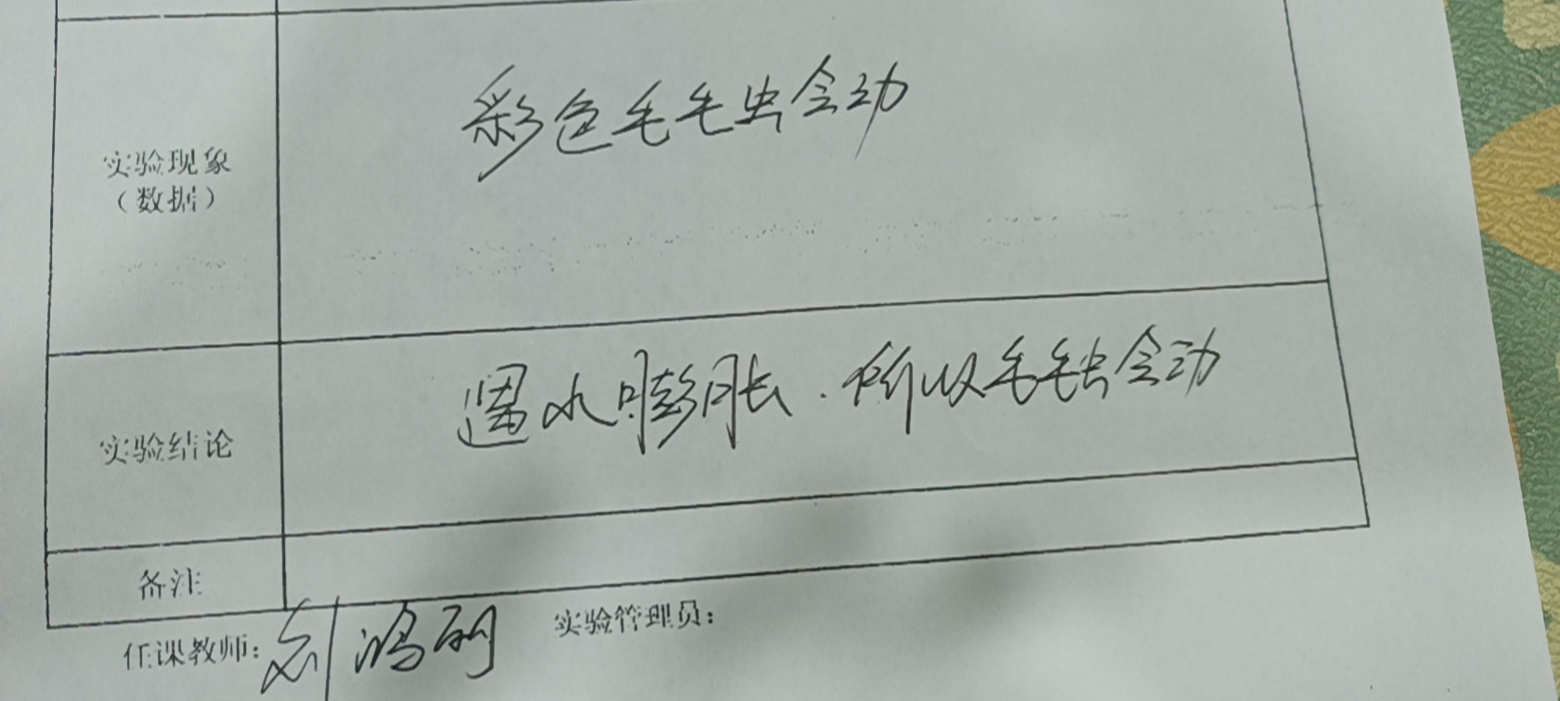 彩色毛毛虫会动
实验现象
（数据）
遇水膨胀．所以毛毛虫会动
实验结论
备注
任课教师：刘鸿丽 实验管理员：